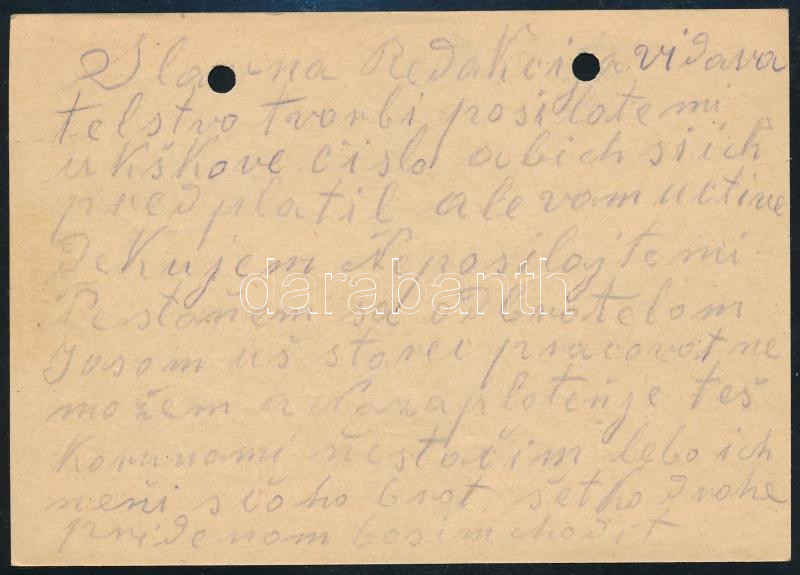 Slavna Redakcija vidava
telstvo tvorbi posilate mi
ukškove čislo abich si ich
predplatil ale vam uctive
dekujem Neposilajte mi
Pestaňem sa odbratelom
Ja som uš starec pracovat ne
možem a Na zaplateňje teš
Korunami ňestačim lebo ich
neňi s čoho brat. šetko drahe
pride nam bosim chodit
darabanth